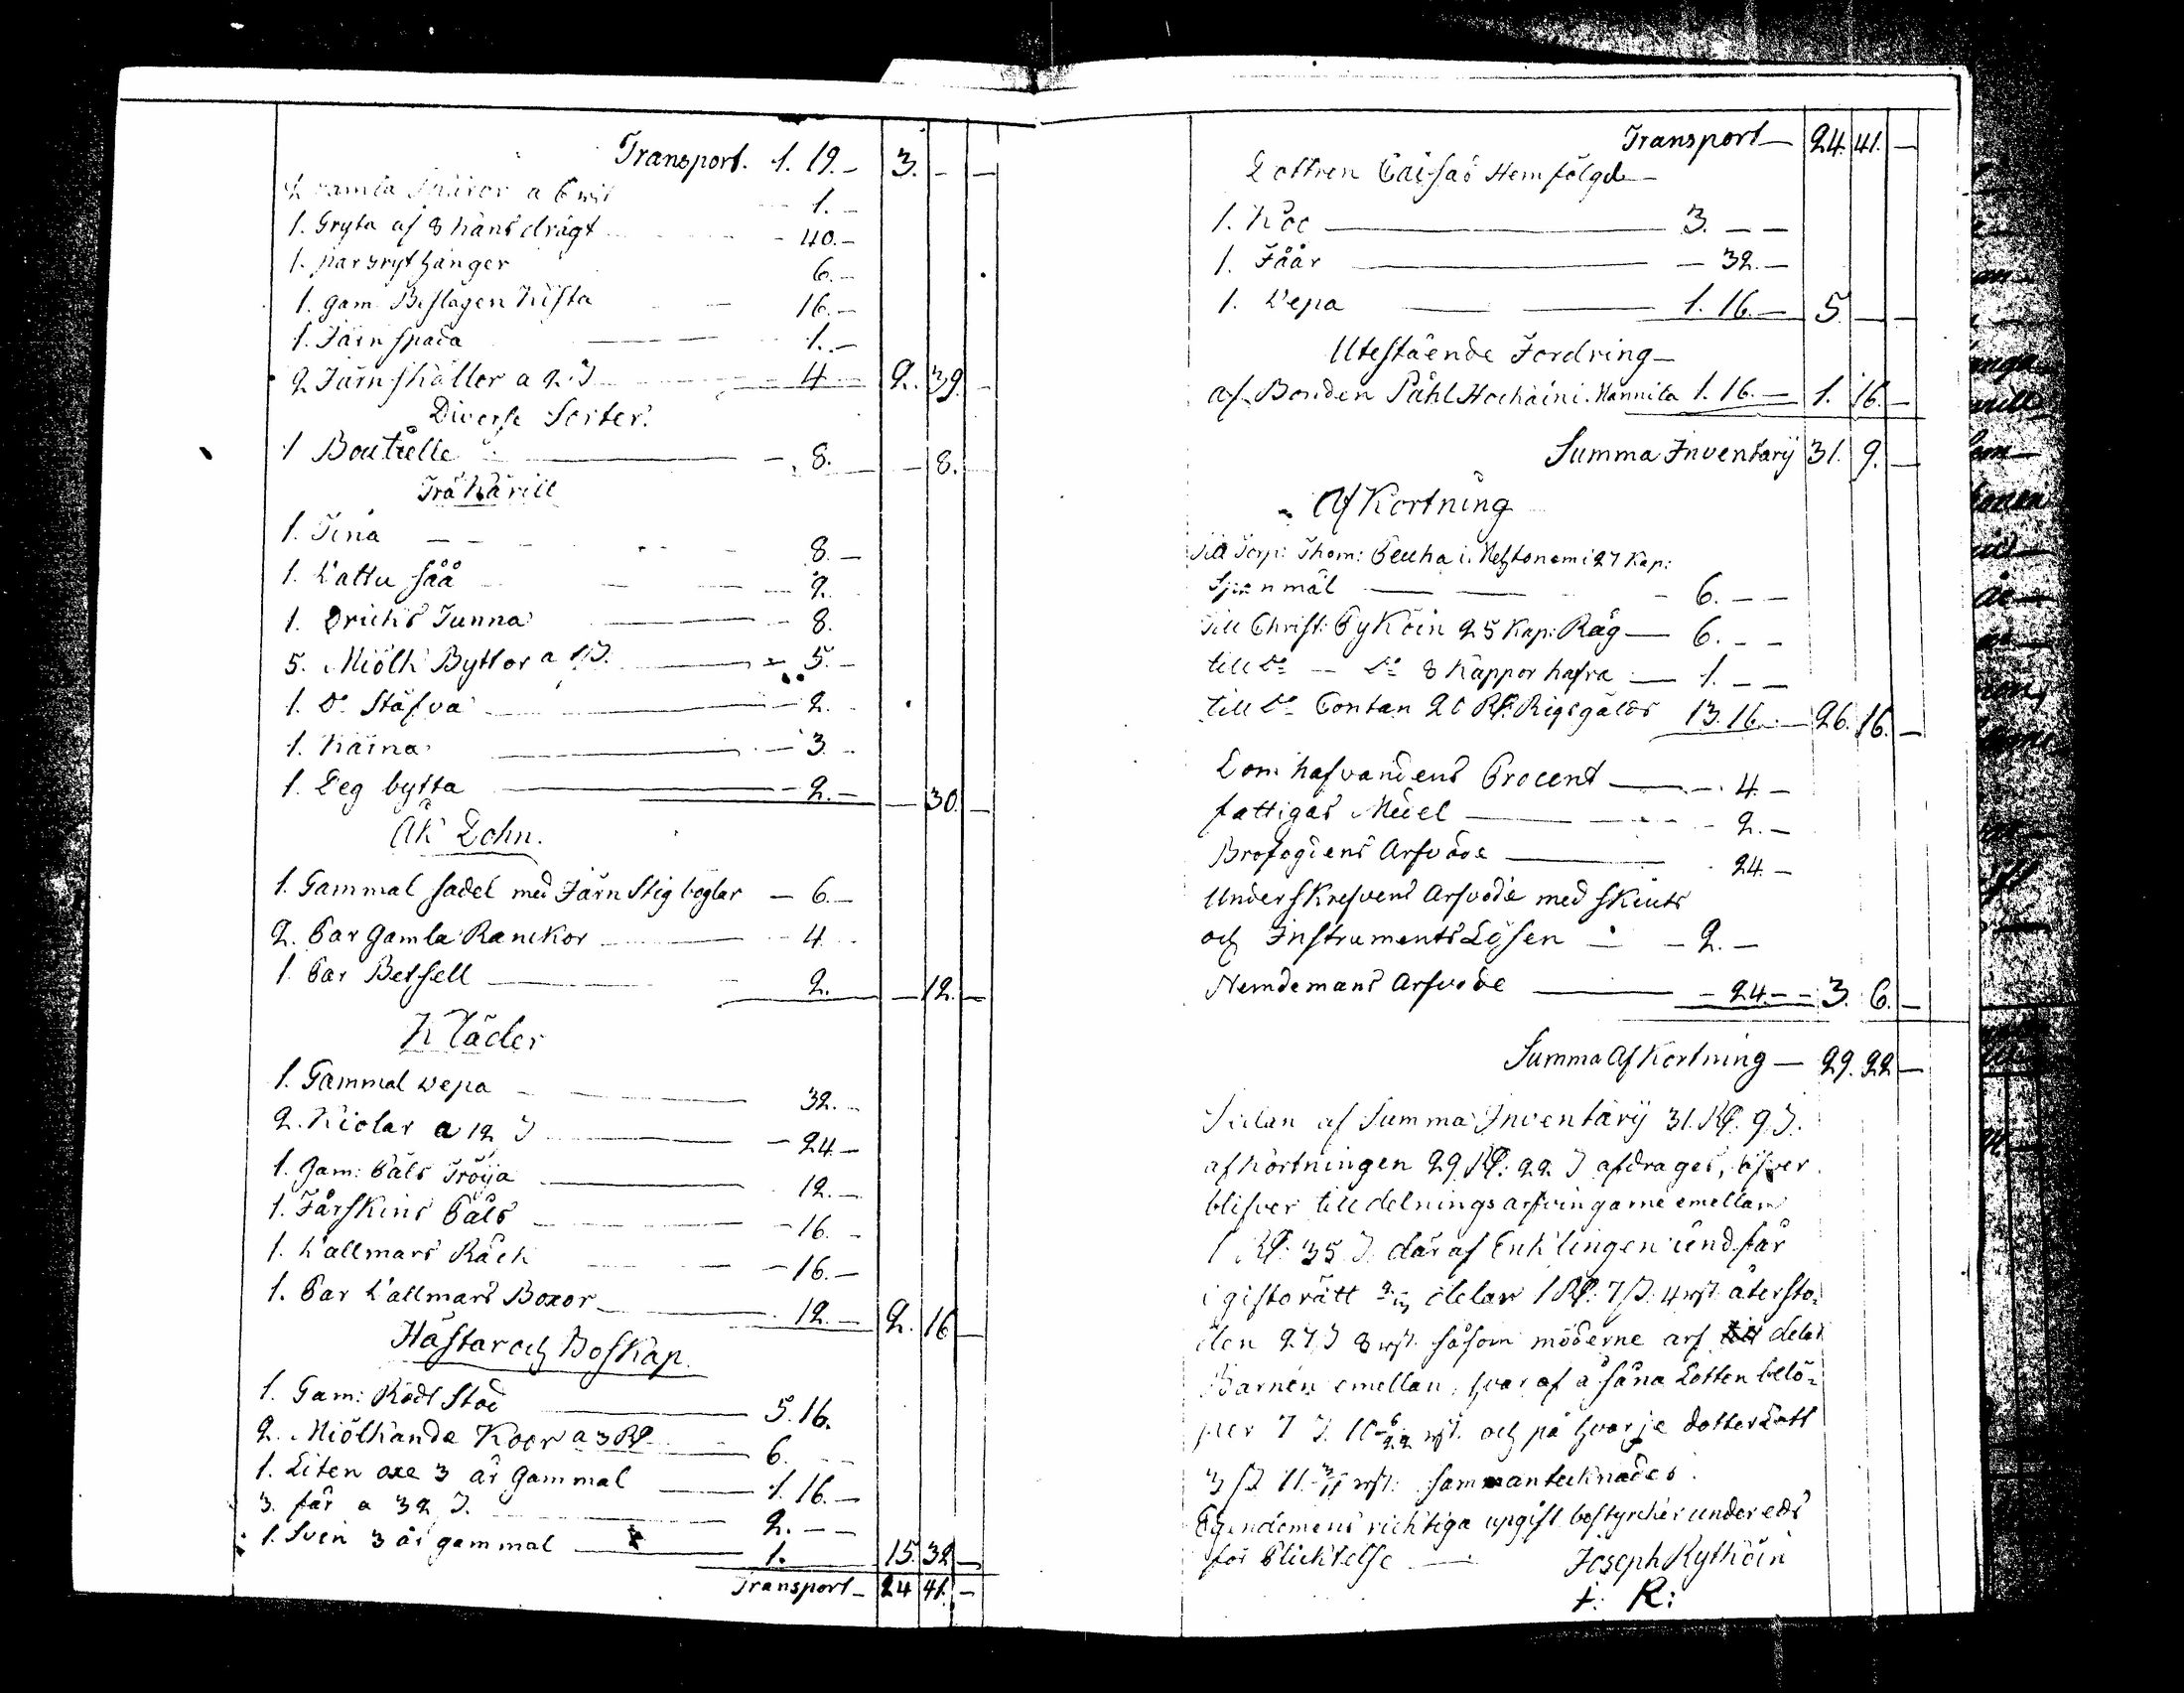 Transport. 1. 19. - 3. - -
1. -
1. Gryta af 8 kans drägt - 40. -
1. par gryt hänger 6. -
1. gam Beslagen Kista 16. -
1. Järn spada 1. -
2 Järn skållor a 2 S 4 - 2. 39. -
Diverse Sorter.
1 Boutrelle - 8. - 8. -
Trä Kärill
1. Tina 8. -
1. Vattu såå 2.
1. Dricks Tunna 8.
5. Miölk Byttor a 1 S. - 5. -
1. Do Stäfva - 2.
1. Kärna - 3. -
1. Deg bytta - 2. - - 30. -
Åk Dohn.
1. Gammal sadel med Järn Stig böglar - 6. -
2. Par Gamla Ranckor - 4.
1. Par Betsell 2. - 12. -
Kläder
1. Gammal vepa 32. -
2. Kiolar a 12 S - 24 -
1. Gam: Päls Tröija 12. -
1. Fårskins Päls - 16. -
1. Vallmars Råck - 16. -
1. Par Vallmars Boxor 12. - 2. 16 -
Hästar och Boskap.
1. Gam: Rödt Stod 5. 16.
2. Miölkande Koor a 3 Rd 6. - -
1. Liten oxe 3 år Gammal 1. 16. -
3. får a 32 S. 2. - -
1. Svin 3 år gammal 1. 15. 32 -
Transport - 24 41. -
Transport - 24. 41. -
Dottren Caisas Hemfölgd -
1. Koo 3. - -
1. Fåår - 32. -
1. Vepa 1. 16. - 5. - -
Utestående Fordring -
af Bonden Påhl Hochaini. Hannila 1. 16. - 1. 16. -
Summa Inventarÿ 31. 9. -
Af Kortning
Till Torp: Thom: Peuha i 27 Kap:
Spanmål - 6. - -
Till Christ: Pyköin 25 Kap: Råg - 6. - -
till Do - Do 8 Kappor hafra - 1. - -
till Do Contan 20 Rd. Rigsgälds 13. 16. - 26. 16. -
Domhafvandens Procent - 4 -
fattigas Medel - 2. -
Brofogdens Arfvode 24. -
Underskrefvens Arfvode med skiuts
och Instruments Lösen - 2. -
Nemdemans Arfvode - 24 - - 3. 6. -
Summa Af Kortning - 29. 22 -
Sidan af Summa Inventarÿ 31. Rd. 9 S.
afkortningen 29 Rd: 22 S afdrages, öfver
blifver till delnings arfvingarne emellan
1 Rd: 35 S. där af Enklingen undfår
i giftorätt 2/3 delar 1 Rd. 7 S. 4 rst. återsto=
den 27 S 8 rst. såsom möderne arf delas
Barnen emellan, hvar af å såna Lotten belö=
per 7 S. 10 6/22 rst. och på hvarje dotter Lott
3 S. 11. 3/11 rst. sammanteknades.
Egendomens richtiga upgift bestyrcker under eds
för Plicktelse - Joseph Kythöin
I: K: